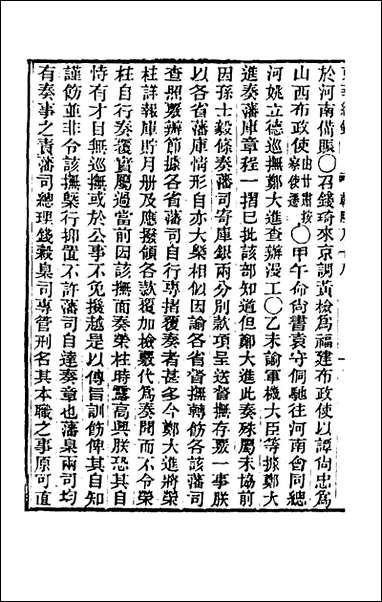 於河南備賑○召錢琦來京調黃檢爲福建布政使以譚尚忠爲
山西布政使由甘肅按察使遷○甲午命尚書袁守侗馳往河南會同總
河姚立德巡撫鄭大進查辦漫工○乙未諭軍機大臣等據鄭大
進奏藩庫章程一摺已批該部知道但鄭大進此奏殊屬未協前
因孫士毅條奏藩司寄庫銀兩分別款項呈送督撫存覈一事朕
以各省藩庫情形自亦大槩相似因諭各省督撫轉飭各該藩司
查照覈辦節據各省藩司自行專摺覆奏者甚多今鄭大進將榮
柱詳報庫貯月册及應撥領各款覆加檢覈代爲奏聞而不令榮
柱自行奏覆實屬過當前因該撫面奏榮柱時露高興朕恐其自
恃有才目無巡撫或於公事不免攙越是以傳旨訓飭俾其自知
謹飭並非令該撫槩行抑置不許藩司自達奏章也藩臬兩司均
有奏事之責藩司總理錢穀臬司專管刑名其本職之事原可直